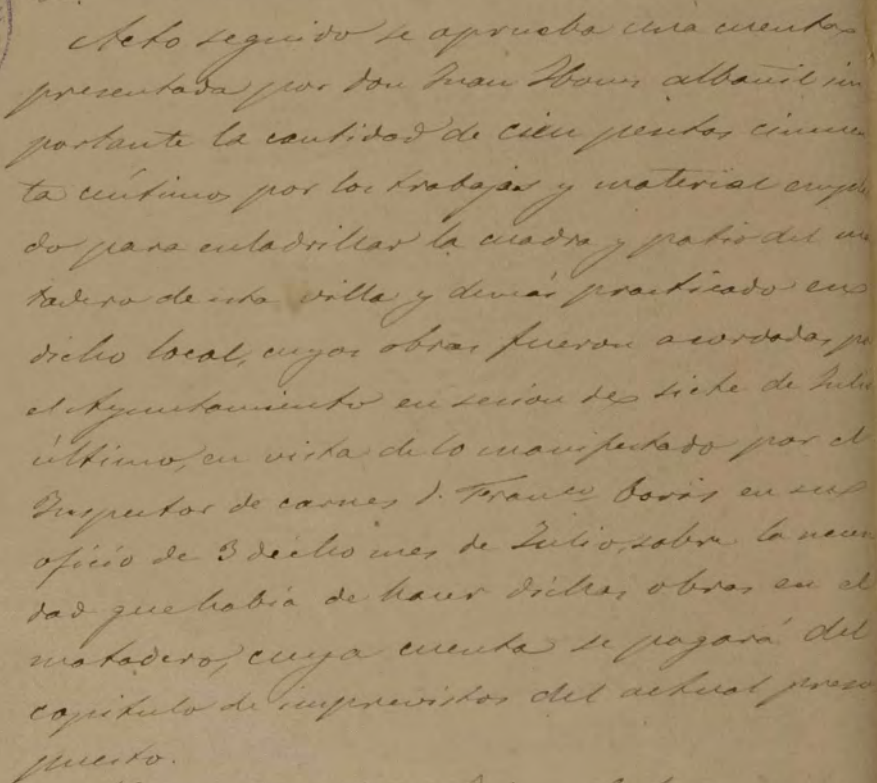 Acto seguido se aprueba una cuenta
presentada por don Juan albañil im
portante la cantidad de cien pesetas cincuen
ta céntimos por los trabajos y material emplea
do para enladrillar la cuadra y patio del ma
tadero de esta villa y demás practicado en
dicho local, cuyas obras fueron acordadas po
el Ayuntamiento en sesion de siete de Julio
último, en vista de lo manifestado por el
Inspector de carnes D. Franco en su
oficio de 3 dicho mes de Julio, sobre la neces
dad que había de hacer dichas obras en el
matadero, cuya cuenta se pagará del
capitulo de imprevistos del actual presu
puesto.